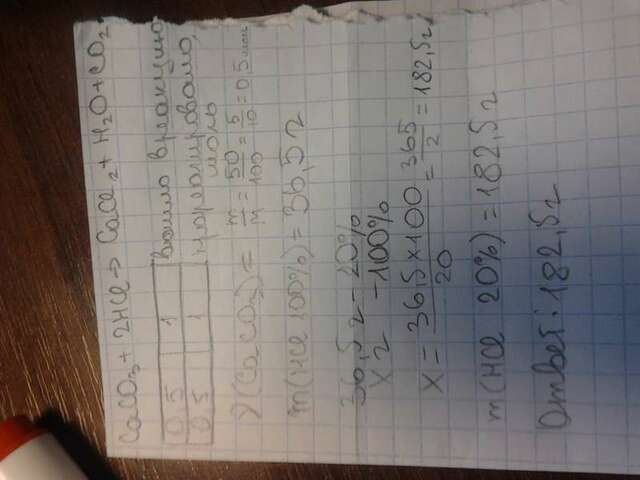 CaCO₃ + 2HCl → CaCl₂ + H₂O + CO₂
0,5 1 вошло в реакцию
0,5 1 прореагировало, моль
ν(CaCO₃) = m/M = 50/100 = 5/10 = 0,5 моль
m(HCl 100%) = 36,5 г
36,5 г - 20%
x г - 100%
x = 36,5 × 100 / 20 = 365/2 = 182,5 г
m(HCl 20%) = 182,5 г
Ответ: 182,5 г